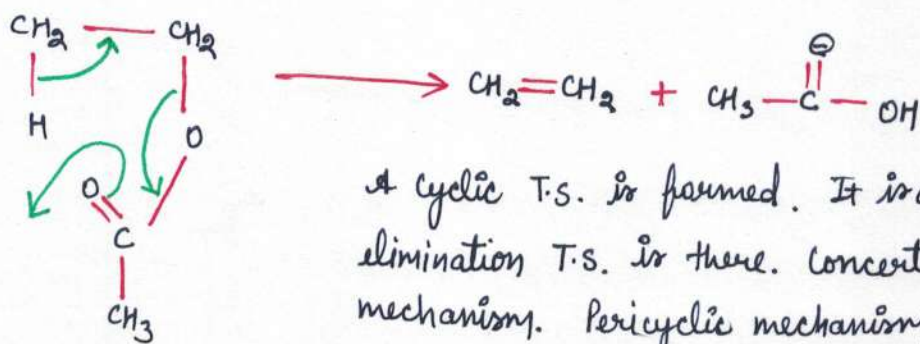 CH2 — CH2
H
O
O
C
CH3
CH2=CH2 + CH3 — C — OH
O
A cyclic T.S. is formed. It is
elimination T.S. is there. Concert
mechanism. Pericyclic mechanism